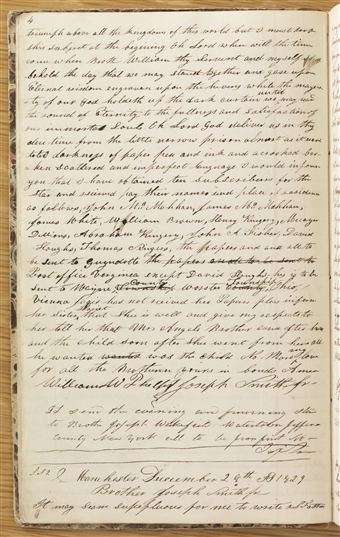 4
triumph above all the kingdoms of this world but I must drop
this subject at the begining Oh Lord when will the time
come when Brothe William thy Servent and myself
behold the day that we may stand together and gaze upon
Eternal wisdom engraven upon the hevens while the magesty
ty of our God holdeth up the dark curtain until we may read
the round of Eternity to the fullness and satisfaction of
our immortal souls Oh Lord God deliver us in thy
due time from the little narrow prison almost as it were
totel darkness of paper pen and ink and a crooked bro
ken scattered and imperfect language I would inform
you that I have obtained ten subscribers for the
Star and received pay their names and place of residence
as follows, John McMahhan, James McMahhan,
James White, William Brown, Henry Kingery, Micayer
Dillions, Abraham Kingery, John A Fisher, David
Houghs, Thomas Singers, the papers and all to
be sent to Guyndotte the papers and to be sent to
Post office Verginea except David Houghs, his is to be
sent to Wayne County Wooster Township Ohio,
Vienna Jaqis has not received her Papers pleas inform
her sister Burt that she is well and give my respects to
her tell her that Mrs Angels Brother came after her
and the child soon after she went from here all
he wanted was the child No More love
for all the Brethren yours in bonds Amen
William W Phelps Joseph Smith Jr